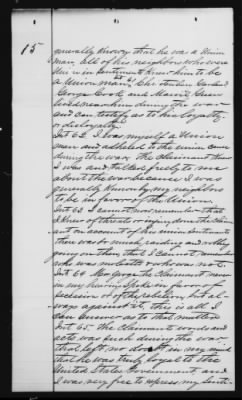 15
generally known that he was a Union
man, all of his neighbors who were
Union in sentiment knew him to be
a Union man,
George Cook and
lived near him during the war
and can testify as to his loyalty
or disloyalty
Int 62. I was myself a Union
man and adhered to the union cause
during the war the claimant knew
I was and talked freely to me
about the war because I was
generally known by my neighbors
to be in favor of the Union.
Int 63 I cannot now remember that
I knew of threats or injury done the claim-
ant on account of his union sentiments
there was so much raiding and robbing
going on then, that I cannot remember
who was molested or who was not.
Int 64 the claimant never
in my hearing spoke in favor of
secession or the rebellion, but al-
ways against it, this is all I
can answer as to that matter
Int 65. The claimants words and
acts was such during the war
that left no doubt in my mind
that he was truly loyal to the
United States Government, and
I was very free to express my senti-